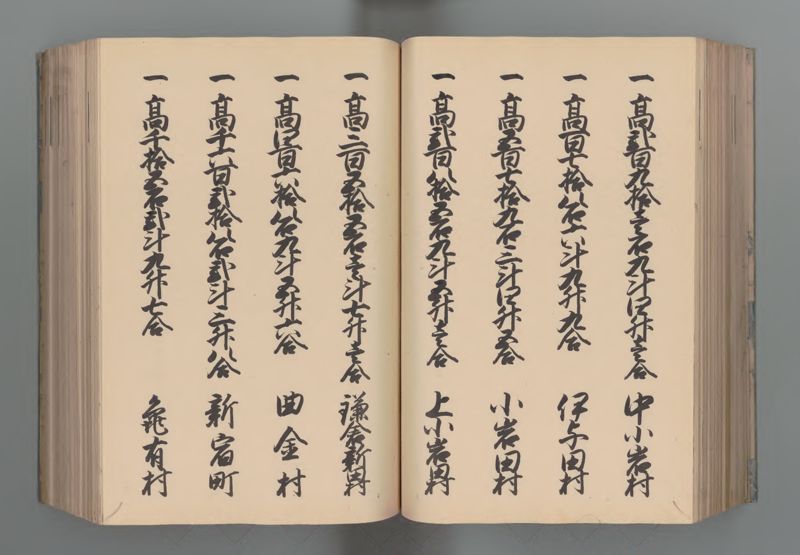 一 高弐百九拾壱石九斗四升壱合 中小岩村
一 高百七拾八石六斗九升九合 伊与田村
一 高五百七拾九石三斗四升五合 小岩田村
一 高弐百八拾五石九斗五升壱合 上小岩田村
一 高三百五拾五石壱斗七升壱合 鎌倉新田村
一 高四百六拾八石九斗五升六合 曲金村
一 高千六百弐拾八石弐斗三升八合 新宿町
一 高千拾五石弐斗九升七合 亀有村